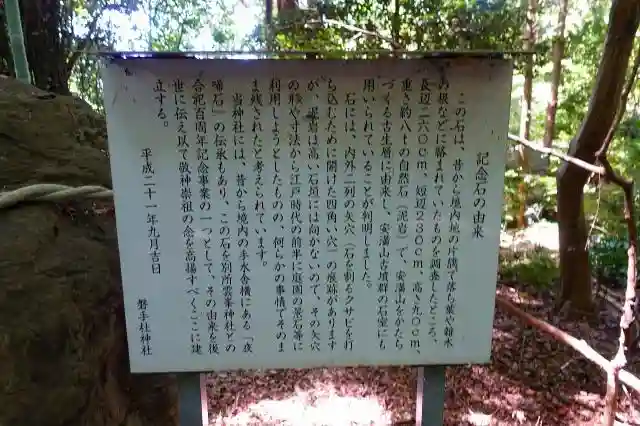 記念石の由来
この石は、昔から境内地の片隅で落ち葉や雑木
の根などに絡まれていたものを調査したところ、
長辺二六〇cm、短辺二三〇cm、高さ九〇cm、
重さ約八tの自然石(泥岩)で、安満山をかたち
づくる古生層に由来し、安満山古墳群の石室にも
用いられていることが判明しました。
石には、内外二列の矢穴(石を割るクサビを打
ち込むために開けた四角い穴)の痕跡があります
が、泥岩は高い石垣には向かないので、その矢穴
の形や寸法から江戸時代の前半に庭園の景石等に
利用しようとしたものの、何らかの事情でそのま
ま残されたと考えられています。
当神社には、昔から境内の手水舎横にある「夜
啼石」の伝承もあり、この石を別所春事神社との
合祀百周年記念事業の一つとして、その由来を後
世に伝え以て敬神崇祖の念を高揚すべくここに建
立する。
平成二十一年九月吉日
磐手杜神社